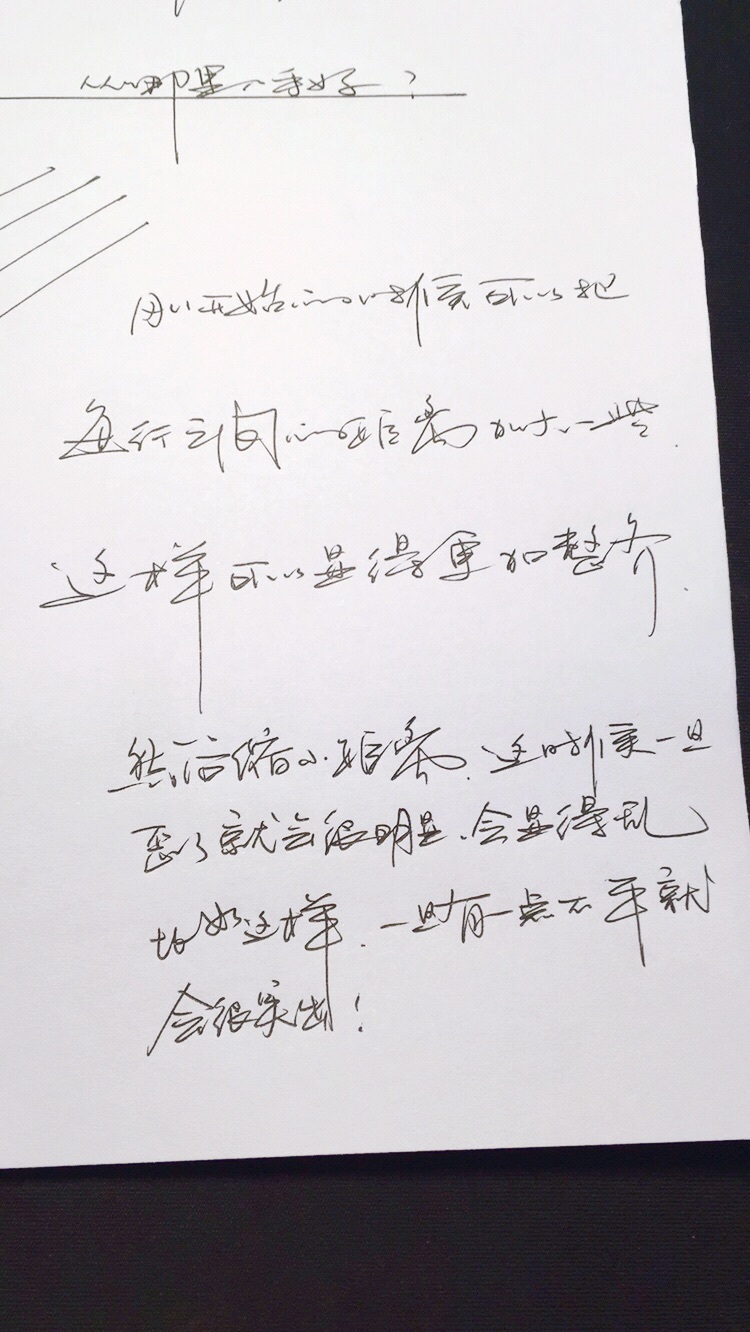 从哪里入手好？
刚开始的时候可以把
每行之间的距离加大一些.
这样可以显得更加整齐.
然后缩小距离.这时候一旦
歪了就会很明显.会显得乱
比如这样.一旦有一点不平就
会很突出！